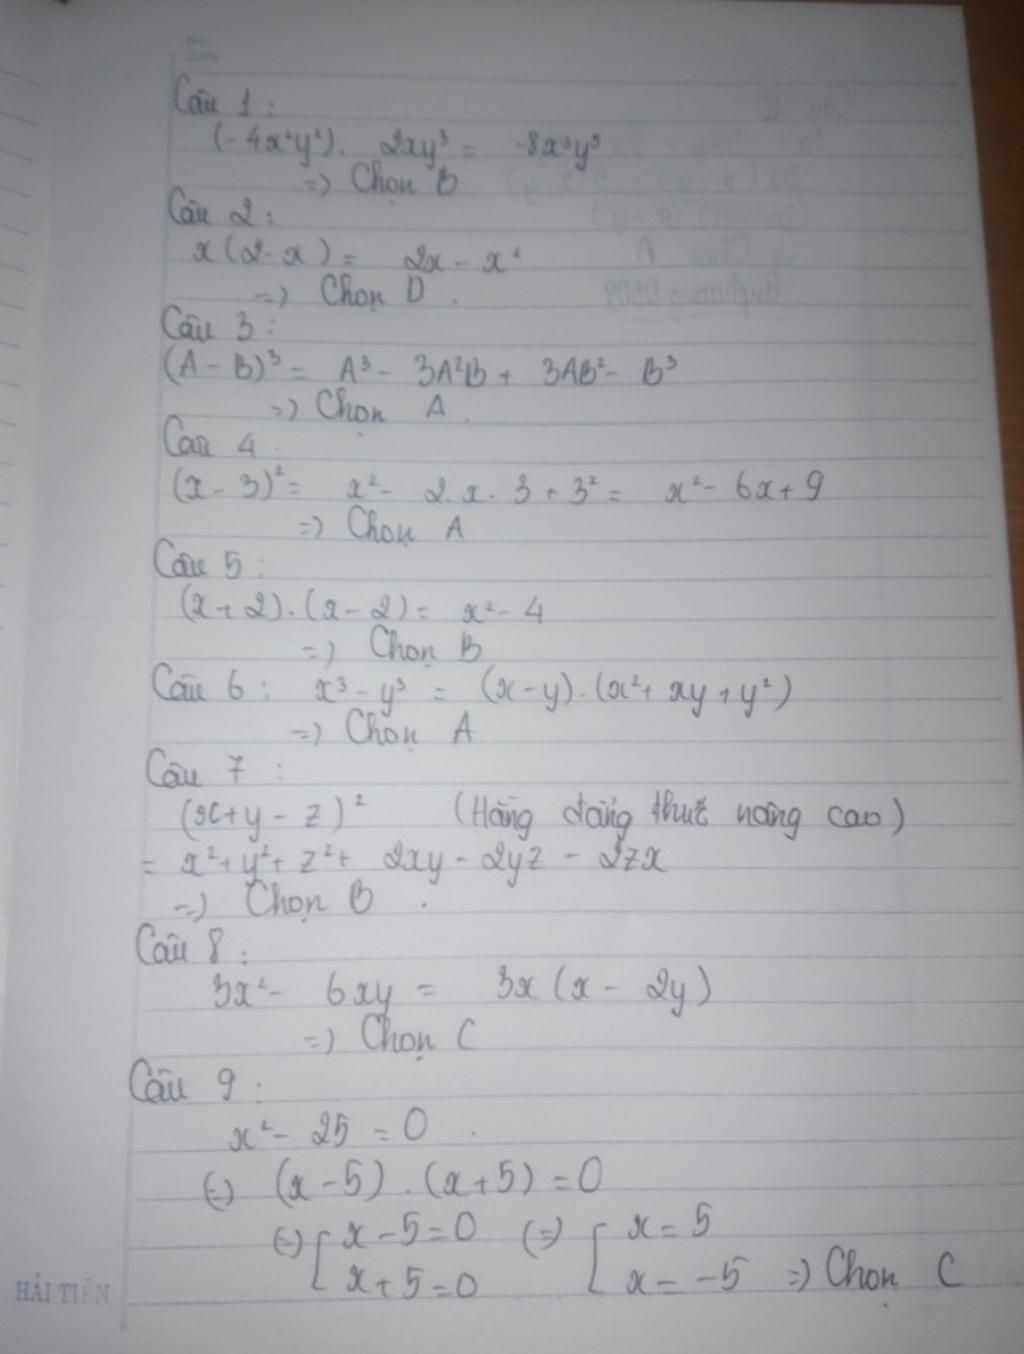 Câu 1:
(-4x²y²). 2xy³ = -8x³y⁵
=) Chọn B
Câu 2:
x(2-x) = 2x - x²
=) Chọn D.
Câu 3:
(A - B)³ = A³ - 3A²B + 3AB² - B³
=) Chọn A.
Câu 4:
(x - 3)² = x² - 2.x.3 + 3² = x² - 6x + 9
=) Chọn A
Câu 5:
(x + 2).(x - 2) = x² - 4
=) Chọn B
Câu 6: x³ - y³ = (x - y).(x² + xy + y²)
=) Chọn A
Câu 7:
(x + y - z)² (Hằng đẳng thức nâng cao)
= x² + y² + z² + 2xy - 2yz - 2zx
=) Chọn B.
Câu 8:
3x² - 6xy = 3x(x - 2y)
=) Chọn C
Câu 9:
x² - 25 = 0.
(=) (x - 5).(x + 5) = 0
(=) [ x - 5 = 0 (=) [ x = 5
x + 5 = 0 x = -5 =) Chọn C
HẢI TIẾN